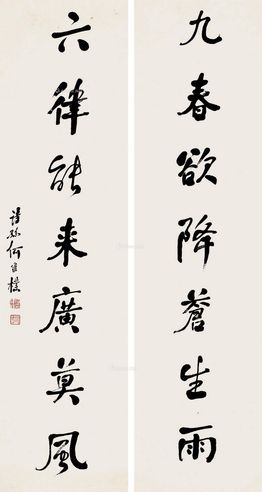 九春欲降蒼生雨
六律能来廣莫風
詩孫何維樸